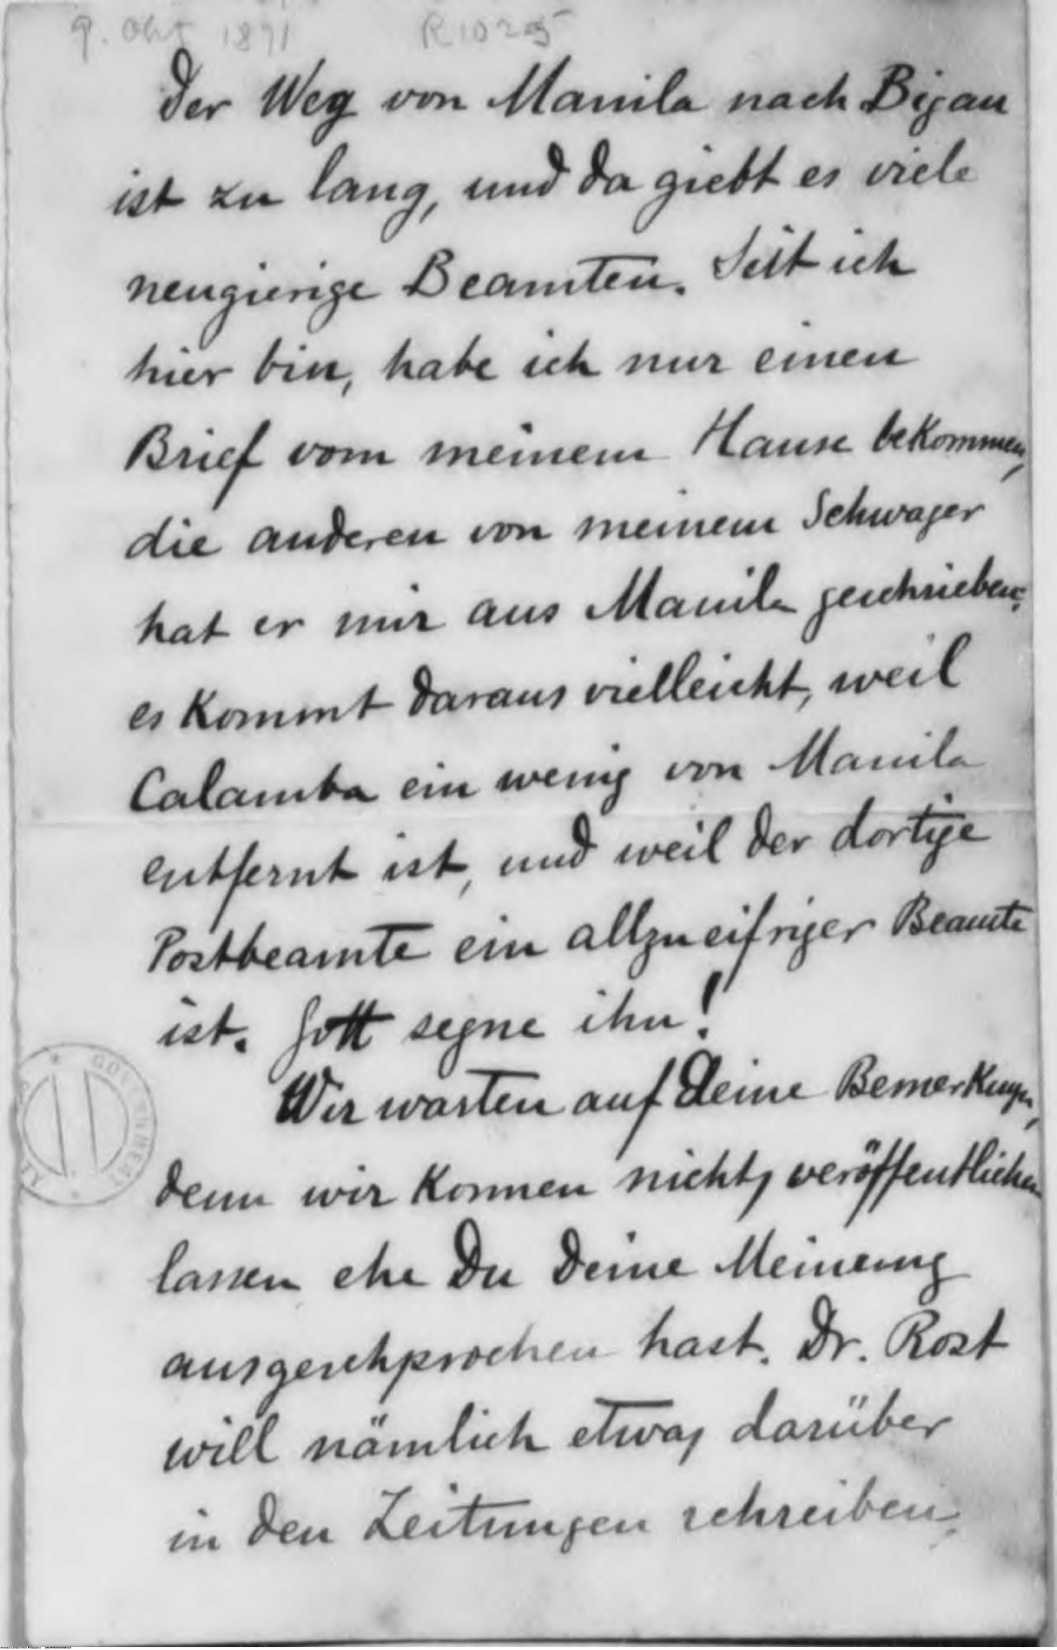 9. Okt 1891 R1025
Der Weg von Manila nach Bigan
ist zu lang, und da giebt es viele
neugierige Beamten. Seit ich
hier bin, habe ich nur einen
Brief vom meinem Hause bekommen,
die anderen von meinem Schwager
hat er mir aus Manila geschrieben;
es kommt daraus vielleicht, weil
Calamba ein wenig von Manila
entfernt ist, und weil der dortige
Postbeamte ein allzueifriger Beamte
ist. Gott segne ihn!
Wir warten auf Deine Bemerkungen,
denn wir konnen nichts veröffentlichen
lassen ehe Du Deine Meinung
ausgeschprochen hast. Dr. Rost
will nämlich etwas darüber
in den Zeitungen schreiben.